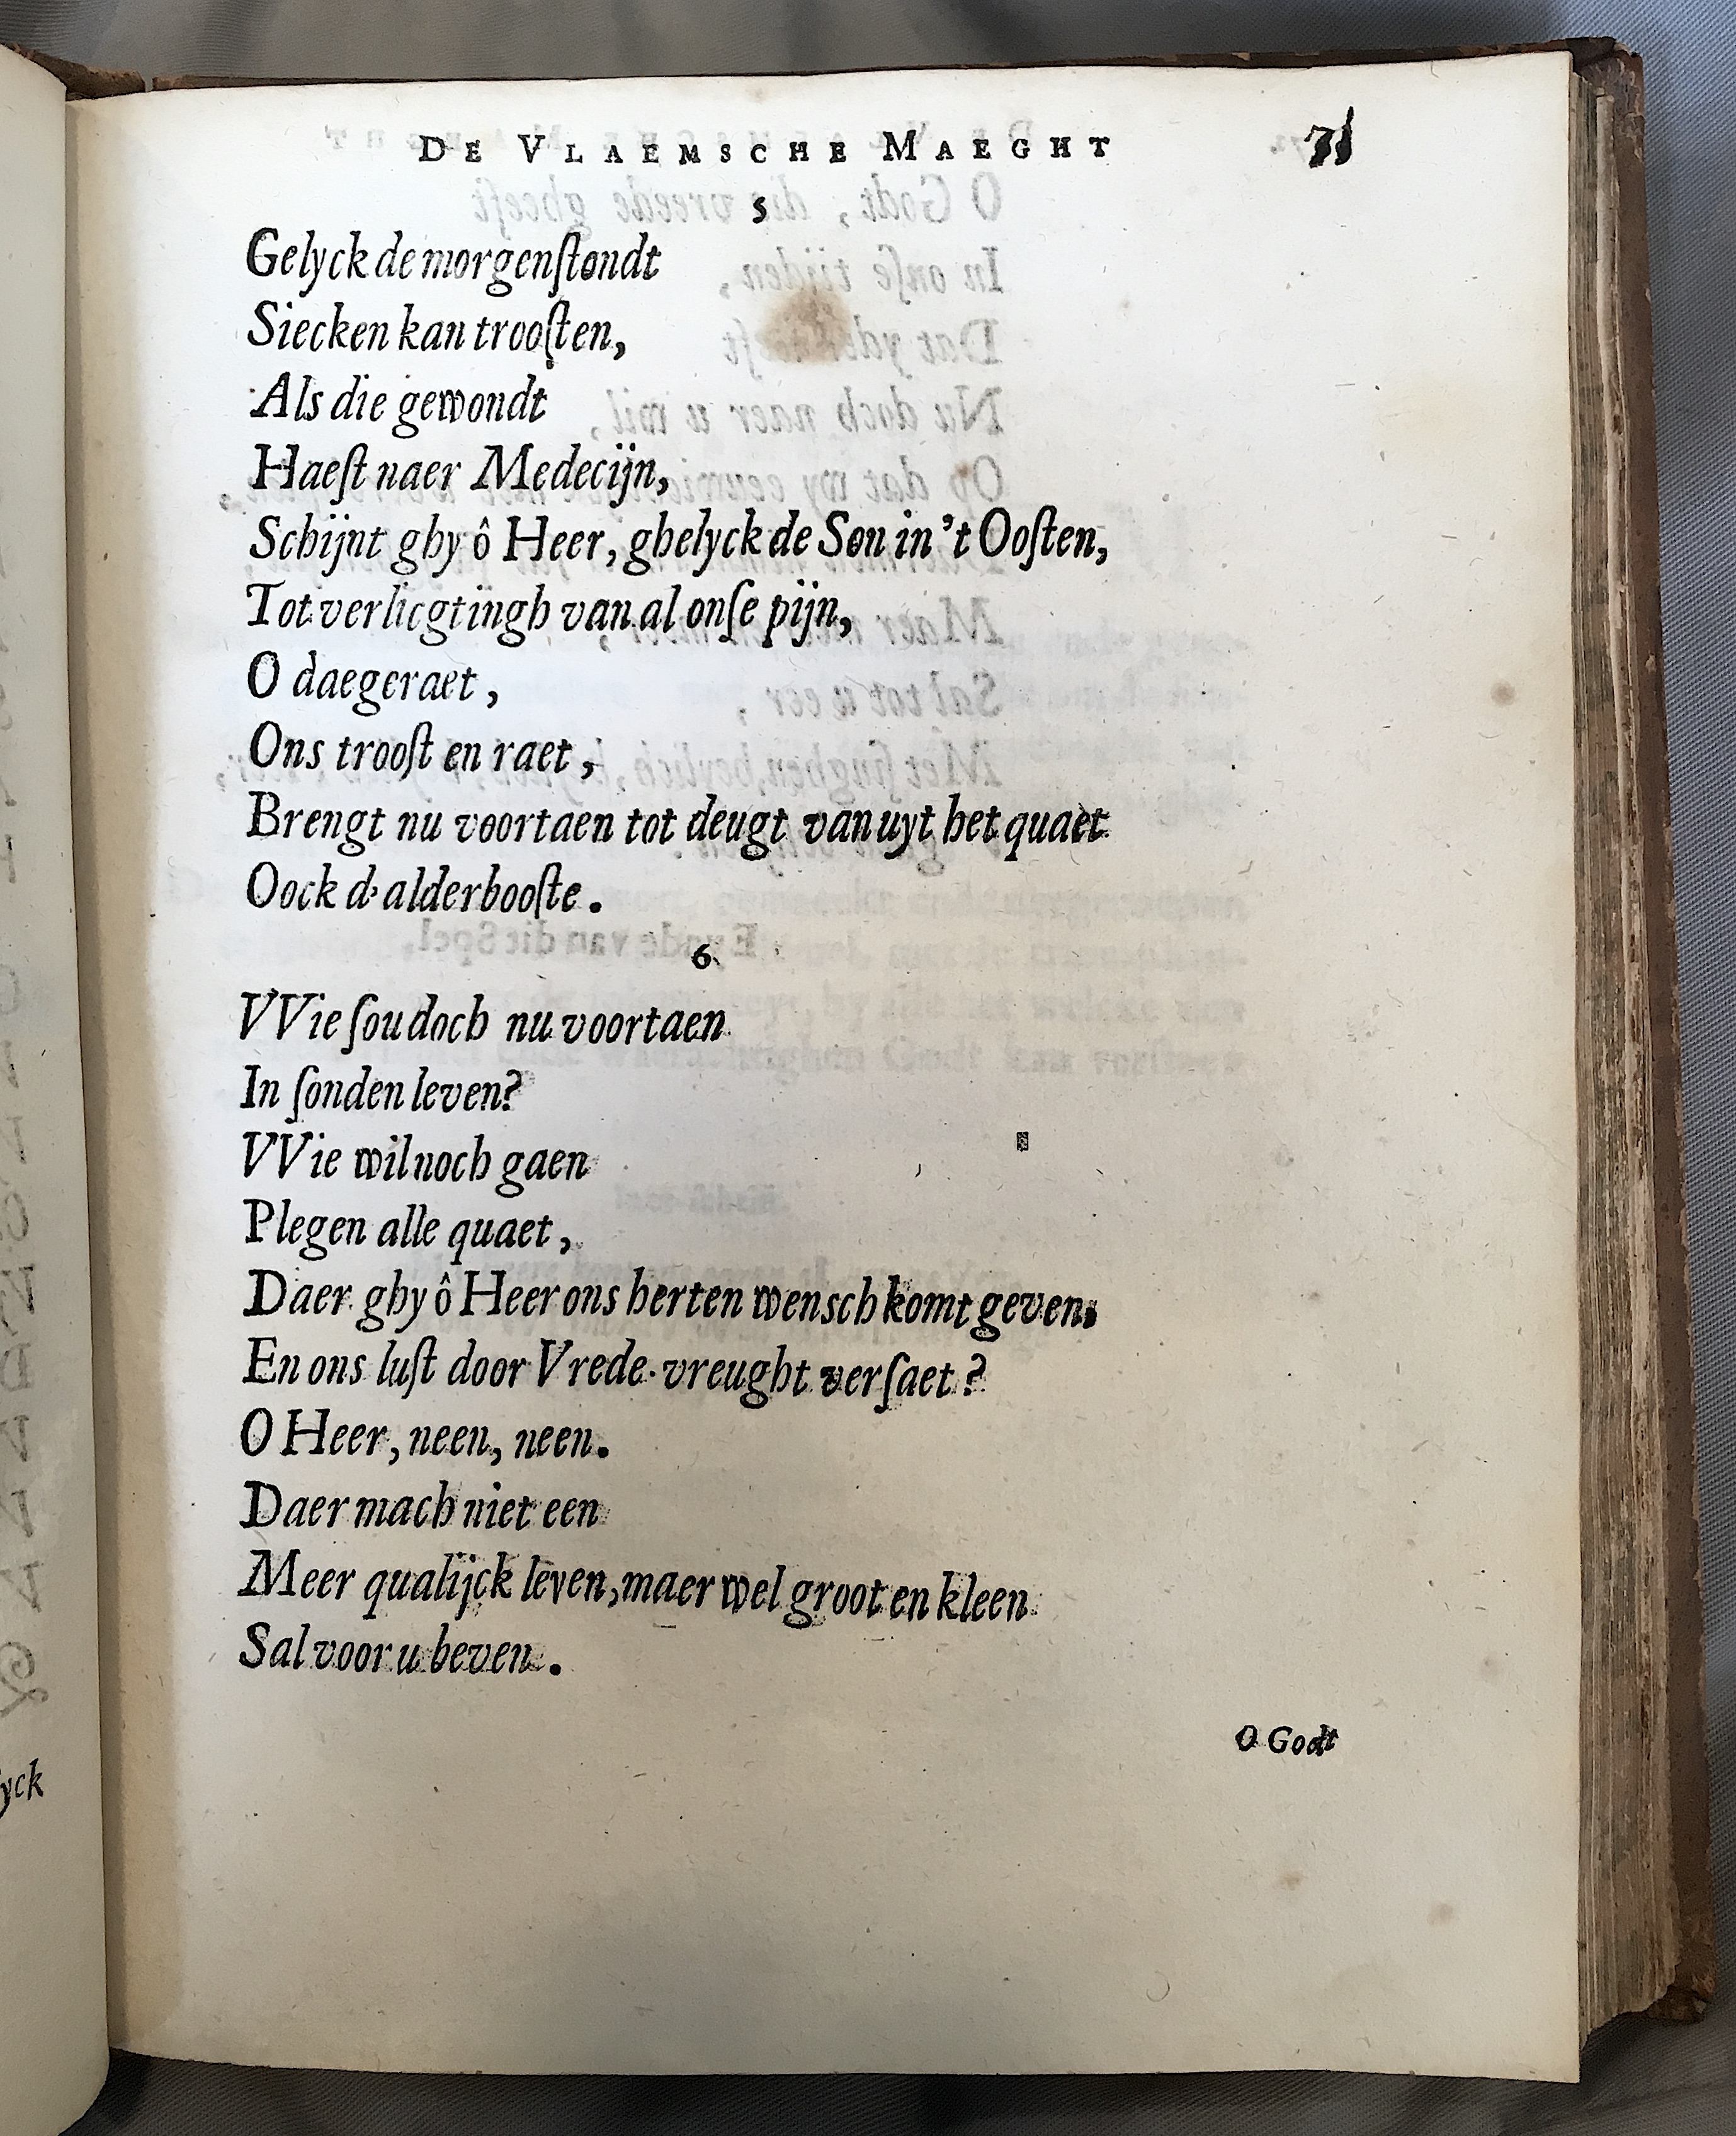 DE VLAEMSCHE MAEGHT 71
5
Gelyck de morgenſtondt
Siecken kan trooſten,
Als die gewondt
Haeſt naer Medecijn,
Schijnt ghy ô Heer, ghelyck de Son in 't Ooſten,
Tot verlicgtingh van al onſe pijn,
O daegeraet,
Ons trooſt en raet,
Brengt nu voortaen tot deugt van uyt het quaet
Oock d'alderbooſte.
6.
VVie ſou doch nu voortaen
In ſonden leven?
VVie wil noch gaen
Plegen alle quaet,
Daer ghy ô Heer ons herten wensch komt geven.
En ons luſt door Vrede-vreught verſaet?
O Heer, neen, neen.
Daer mach niet een
Meer qualijck leven, maer wel groot en kleen
Sal voor u beven.
O Godt
yck